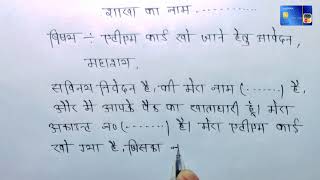 शाखा का नाम ............
विषय ÷ एटीएम कार्ड खो जाने हेतु आवेदन,
महाशय,
सविनय निवेदन है, की मेरा नाम (.......) है,
और मैं आपके बैंक का खाताधारी हूं। मेरा
अकाउन्ट न० (.......) है। मेरा एटीएम कार्ड
खो गया है, जिसका न